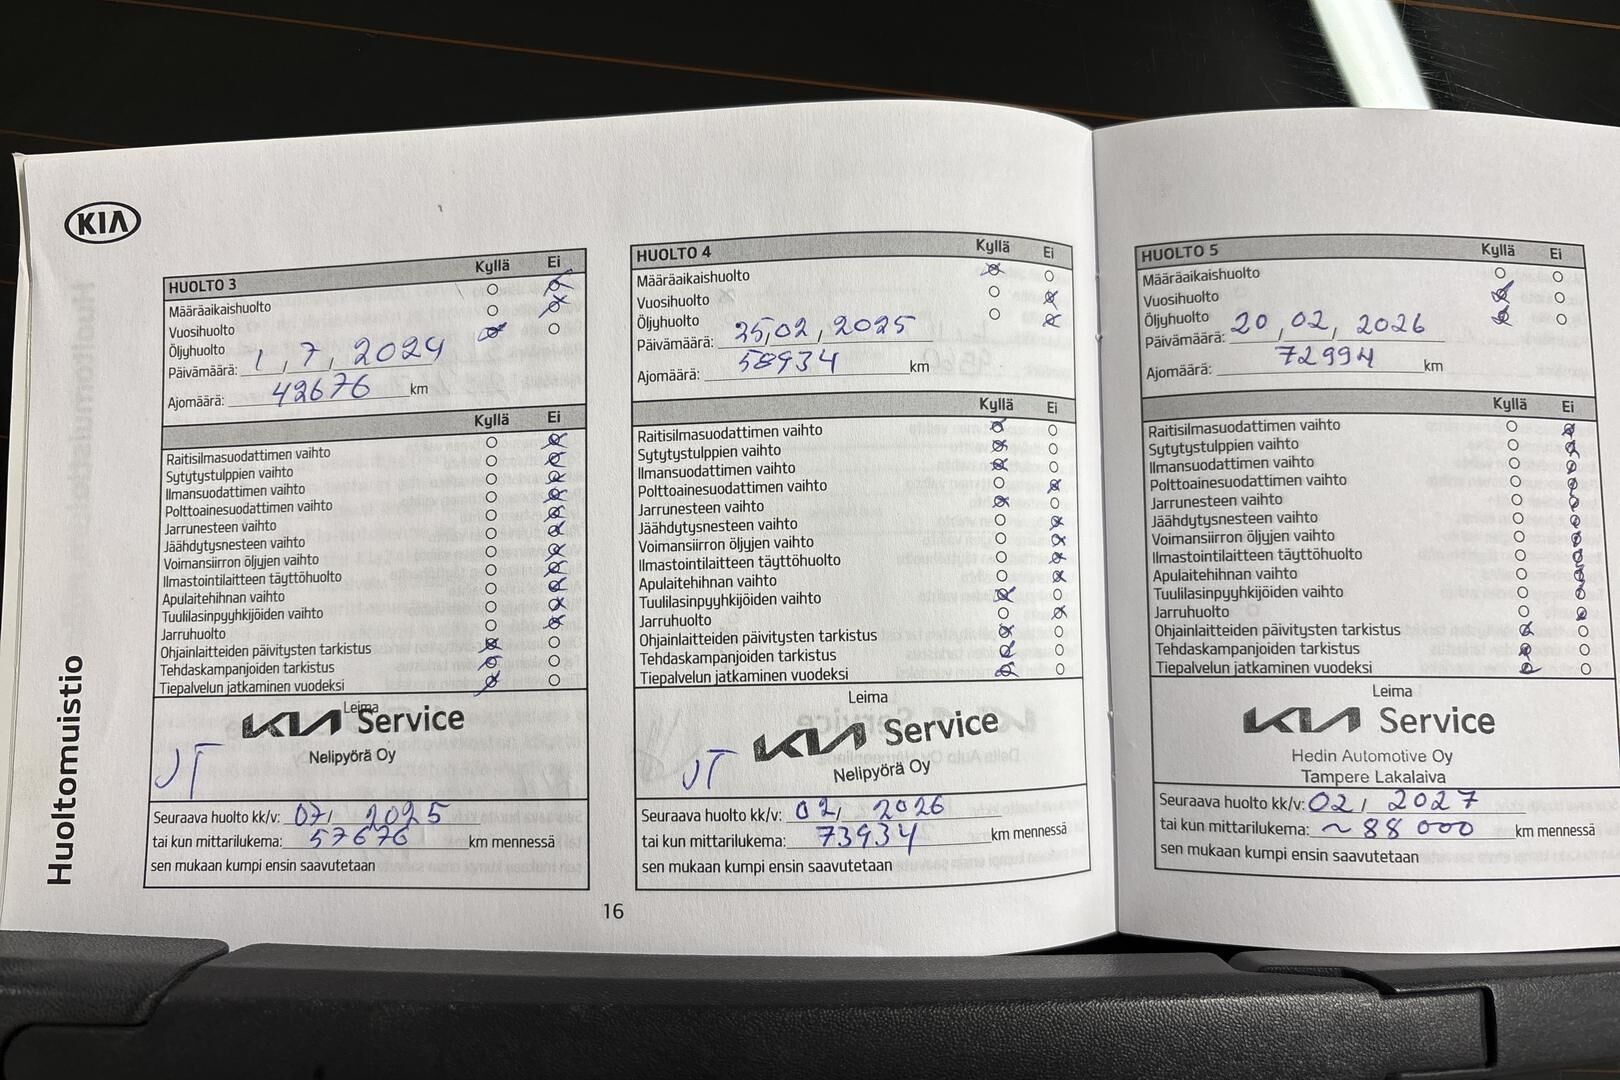 KIA
Huoltomuistio
HUOLTO 3 Kyllä Ei
Määräaikaishuolto
Vuosihuolto
Öljyhuolto
Päivämäärä: 1, 7, 2024
Ajomäärä: 42676 km
Kyllä Ei
Raitisilmasuodattimen vaihto
Sytytystulppien vaihto
Ilmansuodattimen vaihto
Polttoainesuodattimen vaihto
Jarrunesteen vaihto
Jäähdytysnesteen vaihto
Voimansiirron öljyjen vaihto
Ilmastointilaitteen täyttöhuolto
Apulaitehihnan vaihto
Tuulilasinpyyhkijöiden vaihto
Jarruhuolto
Ohjainlaitteiden päivitysten tarkistus
Tehdaskampanjoiden tarkistus
Tiepalvelun jatkaminen vuodeksi
Leima
KIA Service
Nelipyörä Oy
JT
Seuraava huolto kk/v: 07, 2025
tai kun mittarilukema: 57676 km mennessä
sen mukaan kumpi ensin saavutetaan
HUOLTO 4 Kyllä Ei
Määräaikaishuolto
Vuosihuolto
Öljyhuolto
Päivämäärä: 25,02, 2025
Ajomäärä: 58934 km
Kyllä Ei
Raitisilmasuodattimen vaihto
Sytytystulppien vaihto
Ilmansuodattimen vaihto
Polttoainesuodattimen vaihto
Jarrunesteen vaihto
Jäähdytysnesteen vaihto
Voimansiirron öljyjen vaihto
Ilmastointilaitteen täyttöhuolto
Apulaitehihnan vaihto
Tuulilasinpyyhkijöiden vaihto
Jarruhuolto
Ohjainlaitteiden päivitysten tarkistus
Tehdaskampanjoiden tarkistus
Tiepalvelun jatkaminen vuodeksi
Leima
KIA Service
Nelipyörä Oy
JT
Seuraava huolto kk/v: 02, 2026
tai kun mittarilukema: 73934 km mennessä
sen mukaan kumpi ensin saavutetaan
16
HUOLTO 5 Kyllä Ei
Määräaikaishuolto
Vuosihuolto
Öljyhuolto
Päivämäärä: 20,02, 2026
Ajomäärä: 72994 km
Kyllä Ei
Raitisilmasuodattimen vaihto
Sytytystulppien vaihto
Ilmansuodattimen vaihto
Polttoainesuodattimen vaihto
Jarrunesteen vaihto
Jäähdytysnesteen vaihto
Voimansiirron öljyjen vaihto
Ilmastointilaitteen täyttöhuolto
Apulaitehihnan vaihto
Tuulilasinpyyhkijöiden vaihto
Jarruhuolto
Ohjainlaitteiden päivitysten tarkistus
Tehdaskampanjoiden tarkistus
Tiepalvelun jatkaminen vuodeksi
Leima
KIA Service
Hedin Automotive Oy
Tampere Lakalaiva
Seuraava huolto kk/v: 02, 2027
tai kun mittarilukema: ~88 000 km mennessä
sen mukaan kumpi ensin saavutetaan